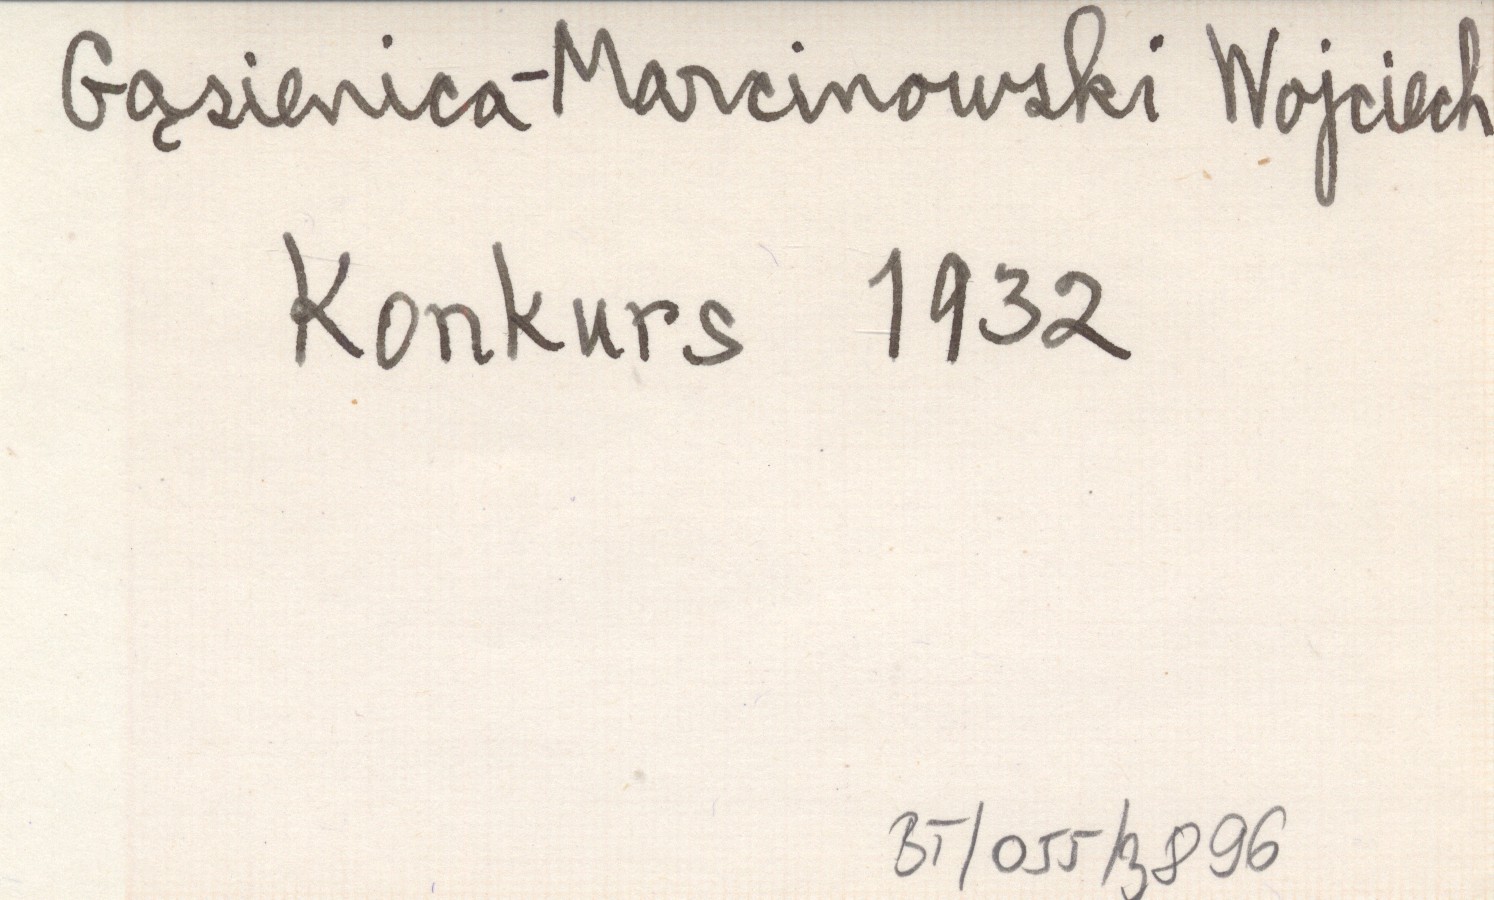 Gąsienica-Marcinowski Wojciech
Konkurs 1932
BT/055/3896